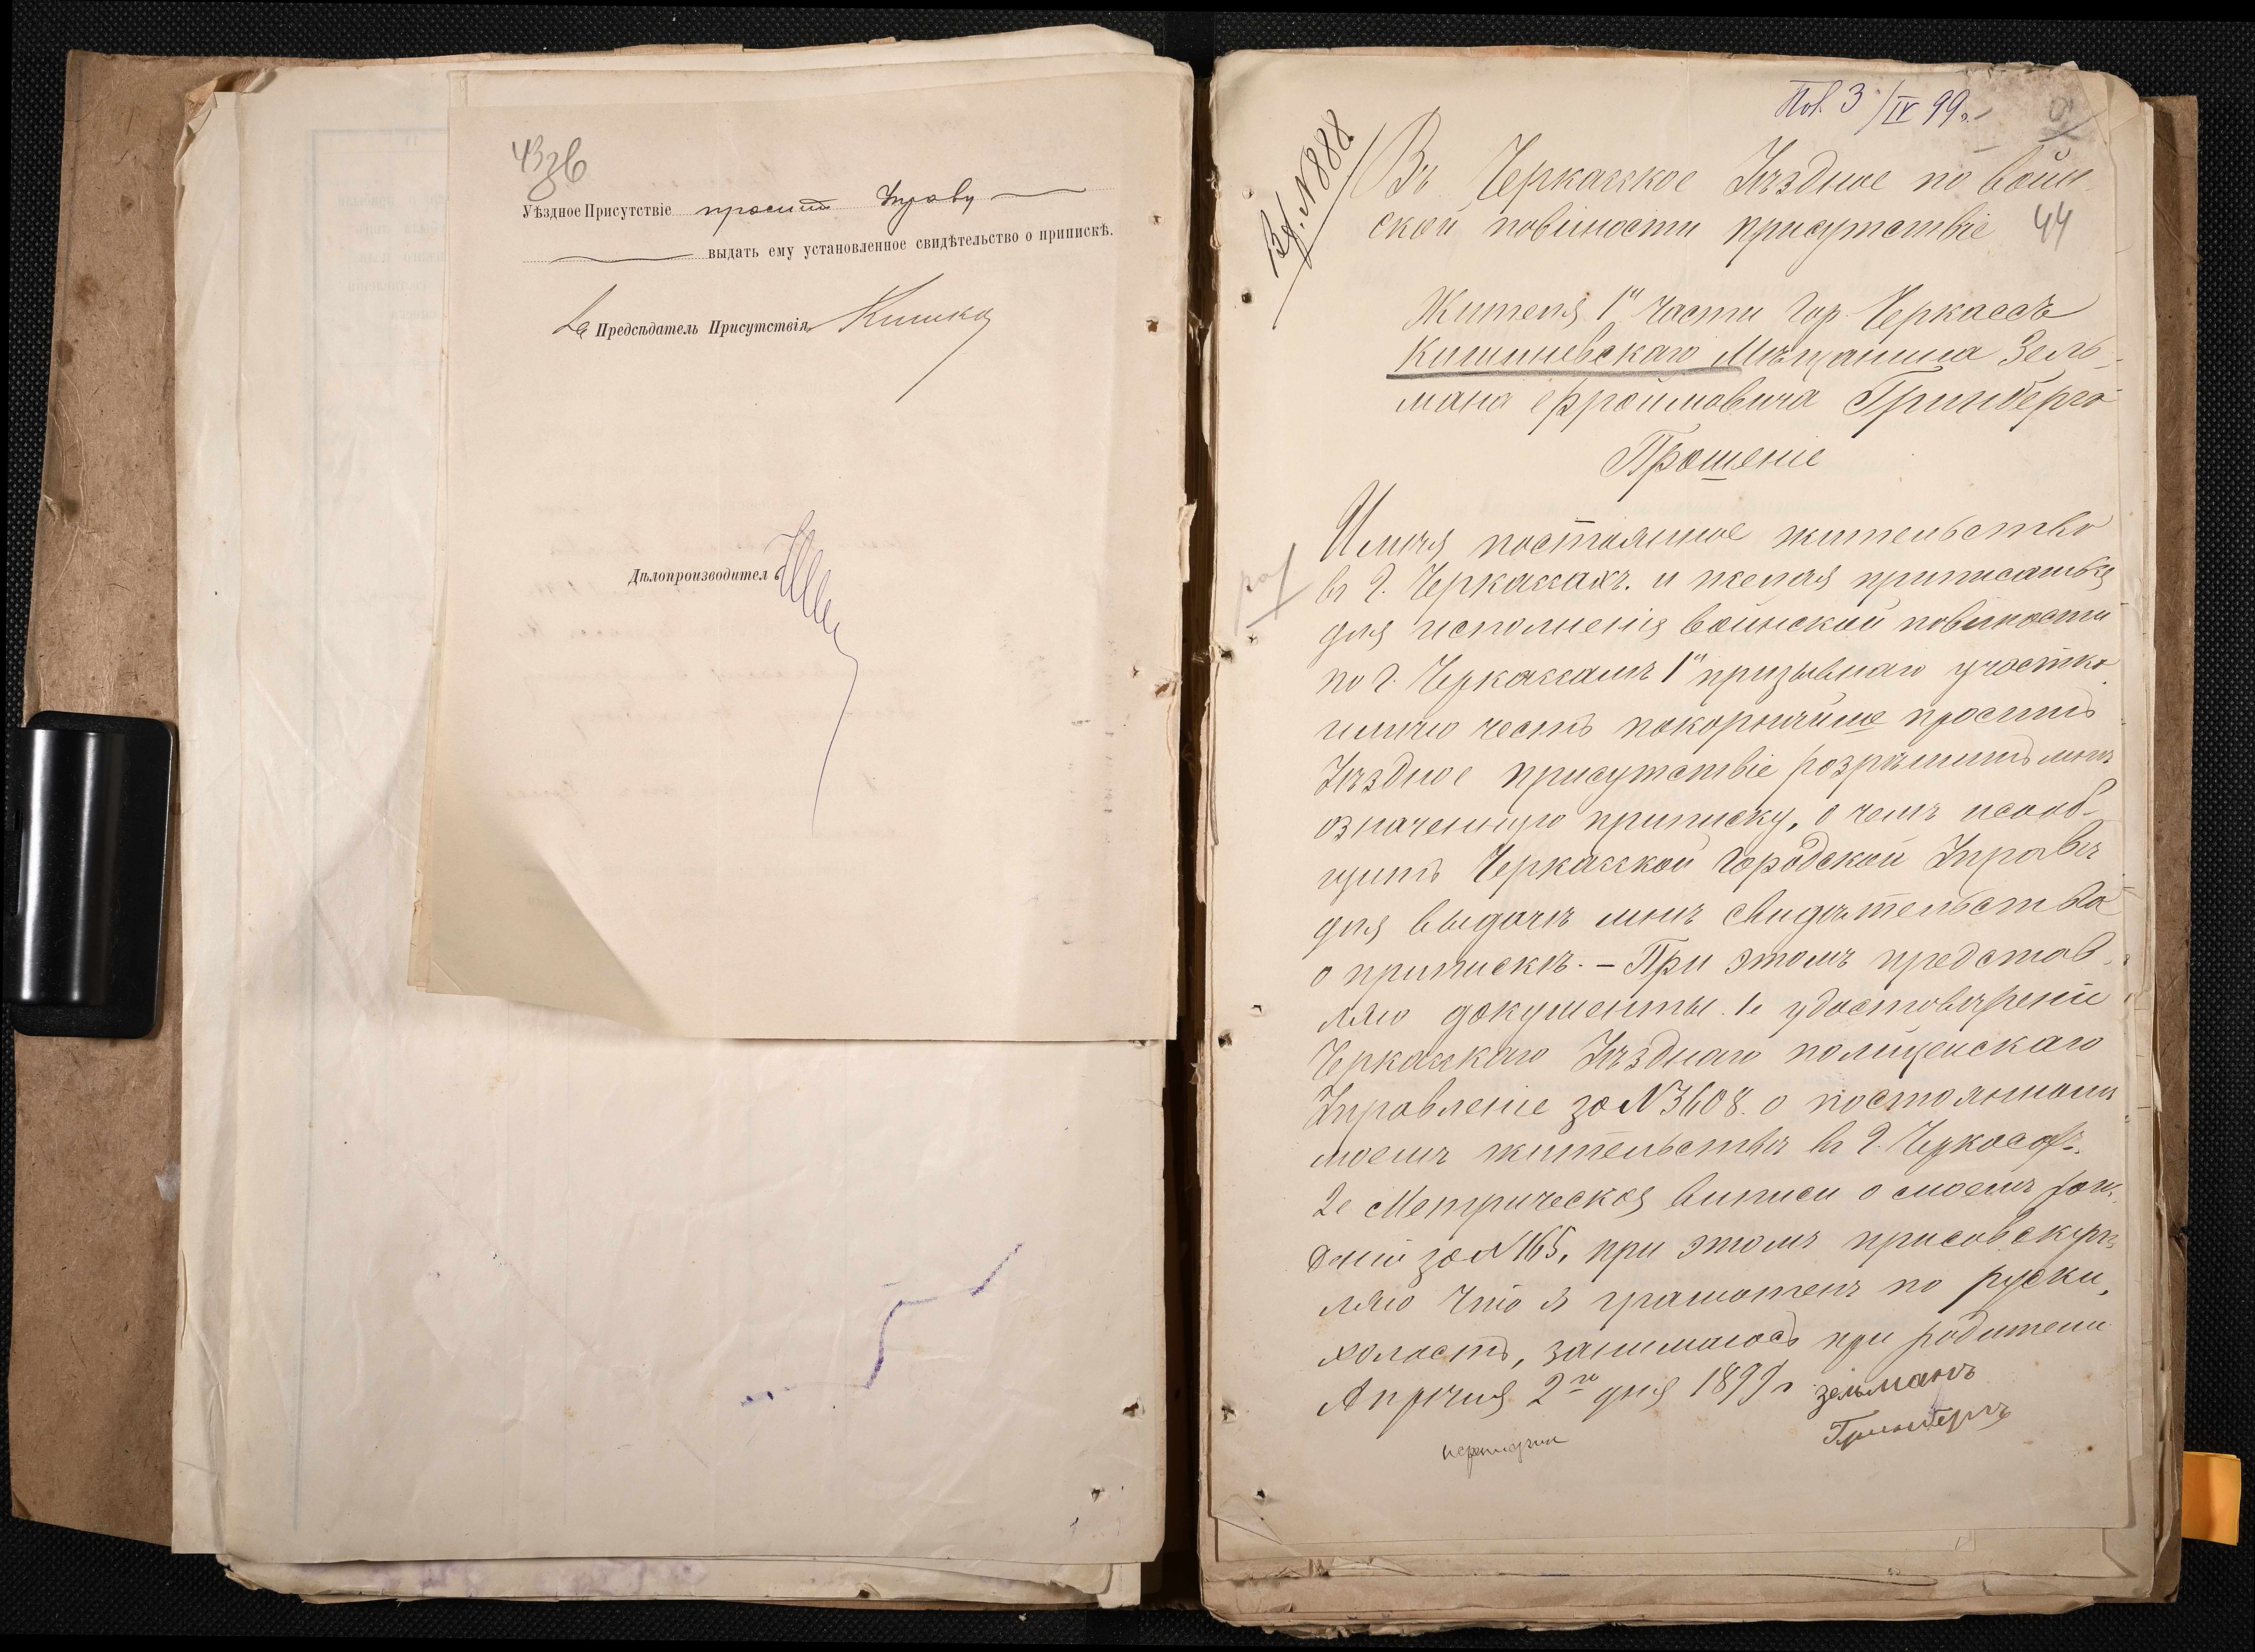 43зв
Уѣздное Присутствіе проситъ Управу
выдать ему установленное свидѣтельство о припискѣ.
За Предсѣдатель Присутствія
Дѣлопроизводител
Пол. 3/IV 99 г.
Вх. № 888
Въ Черкасское Уѣздное по воин-
ской повинности присутствіе
44
Жителя 1й части гор. Черкассъ
Кишиневскаго Мѣщанина Зель-
мана Фроимовича Гринберга
Прошеніе
Имѣя постоянное жительство
въ г. Черкассахъ. и желая приписаться
для исполненія воинской повиности
по г. Черкассамъ 1й призывнаго участка
имѣю честь покорнѣйше просить
Уѣздное присутствіе розрѣшить мнѣ
означенную приписку, о чемъ
щить Черкасской городской Управѣ
для выдачи мнѣ свидѣтельства
о припискѣ. – При этомъ представ-
ляю документы. 1е удостовѣреніе
Черкасскаго Уѣзднаго полицейскаго
Управленіе за № 3608. о постоянномъ
моемъ жительствѣ въ г. Черкасахъ.
2е Метрическая выписи о моемъ рож-
деніи за № 165, при этомъ присовокуп-
ляю что я грамотенъ по руски,
холостъ, занимаюсь при родители
Апрѣля 2го дня 1899 г. зельманъ
Гринбергъ